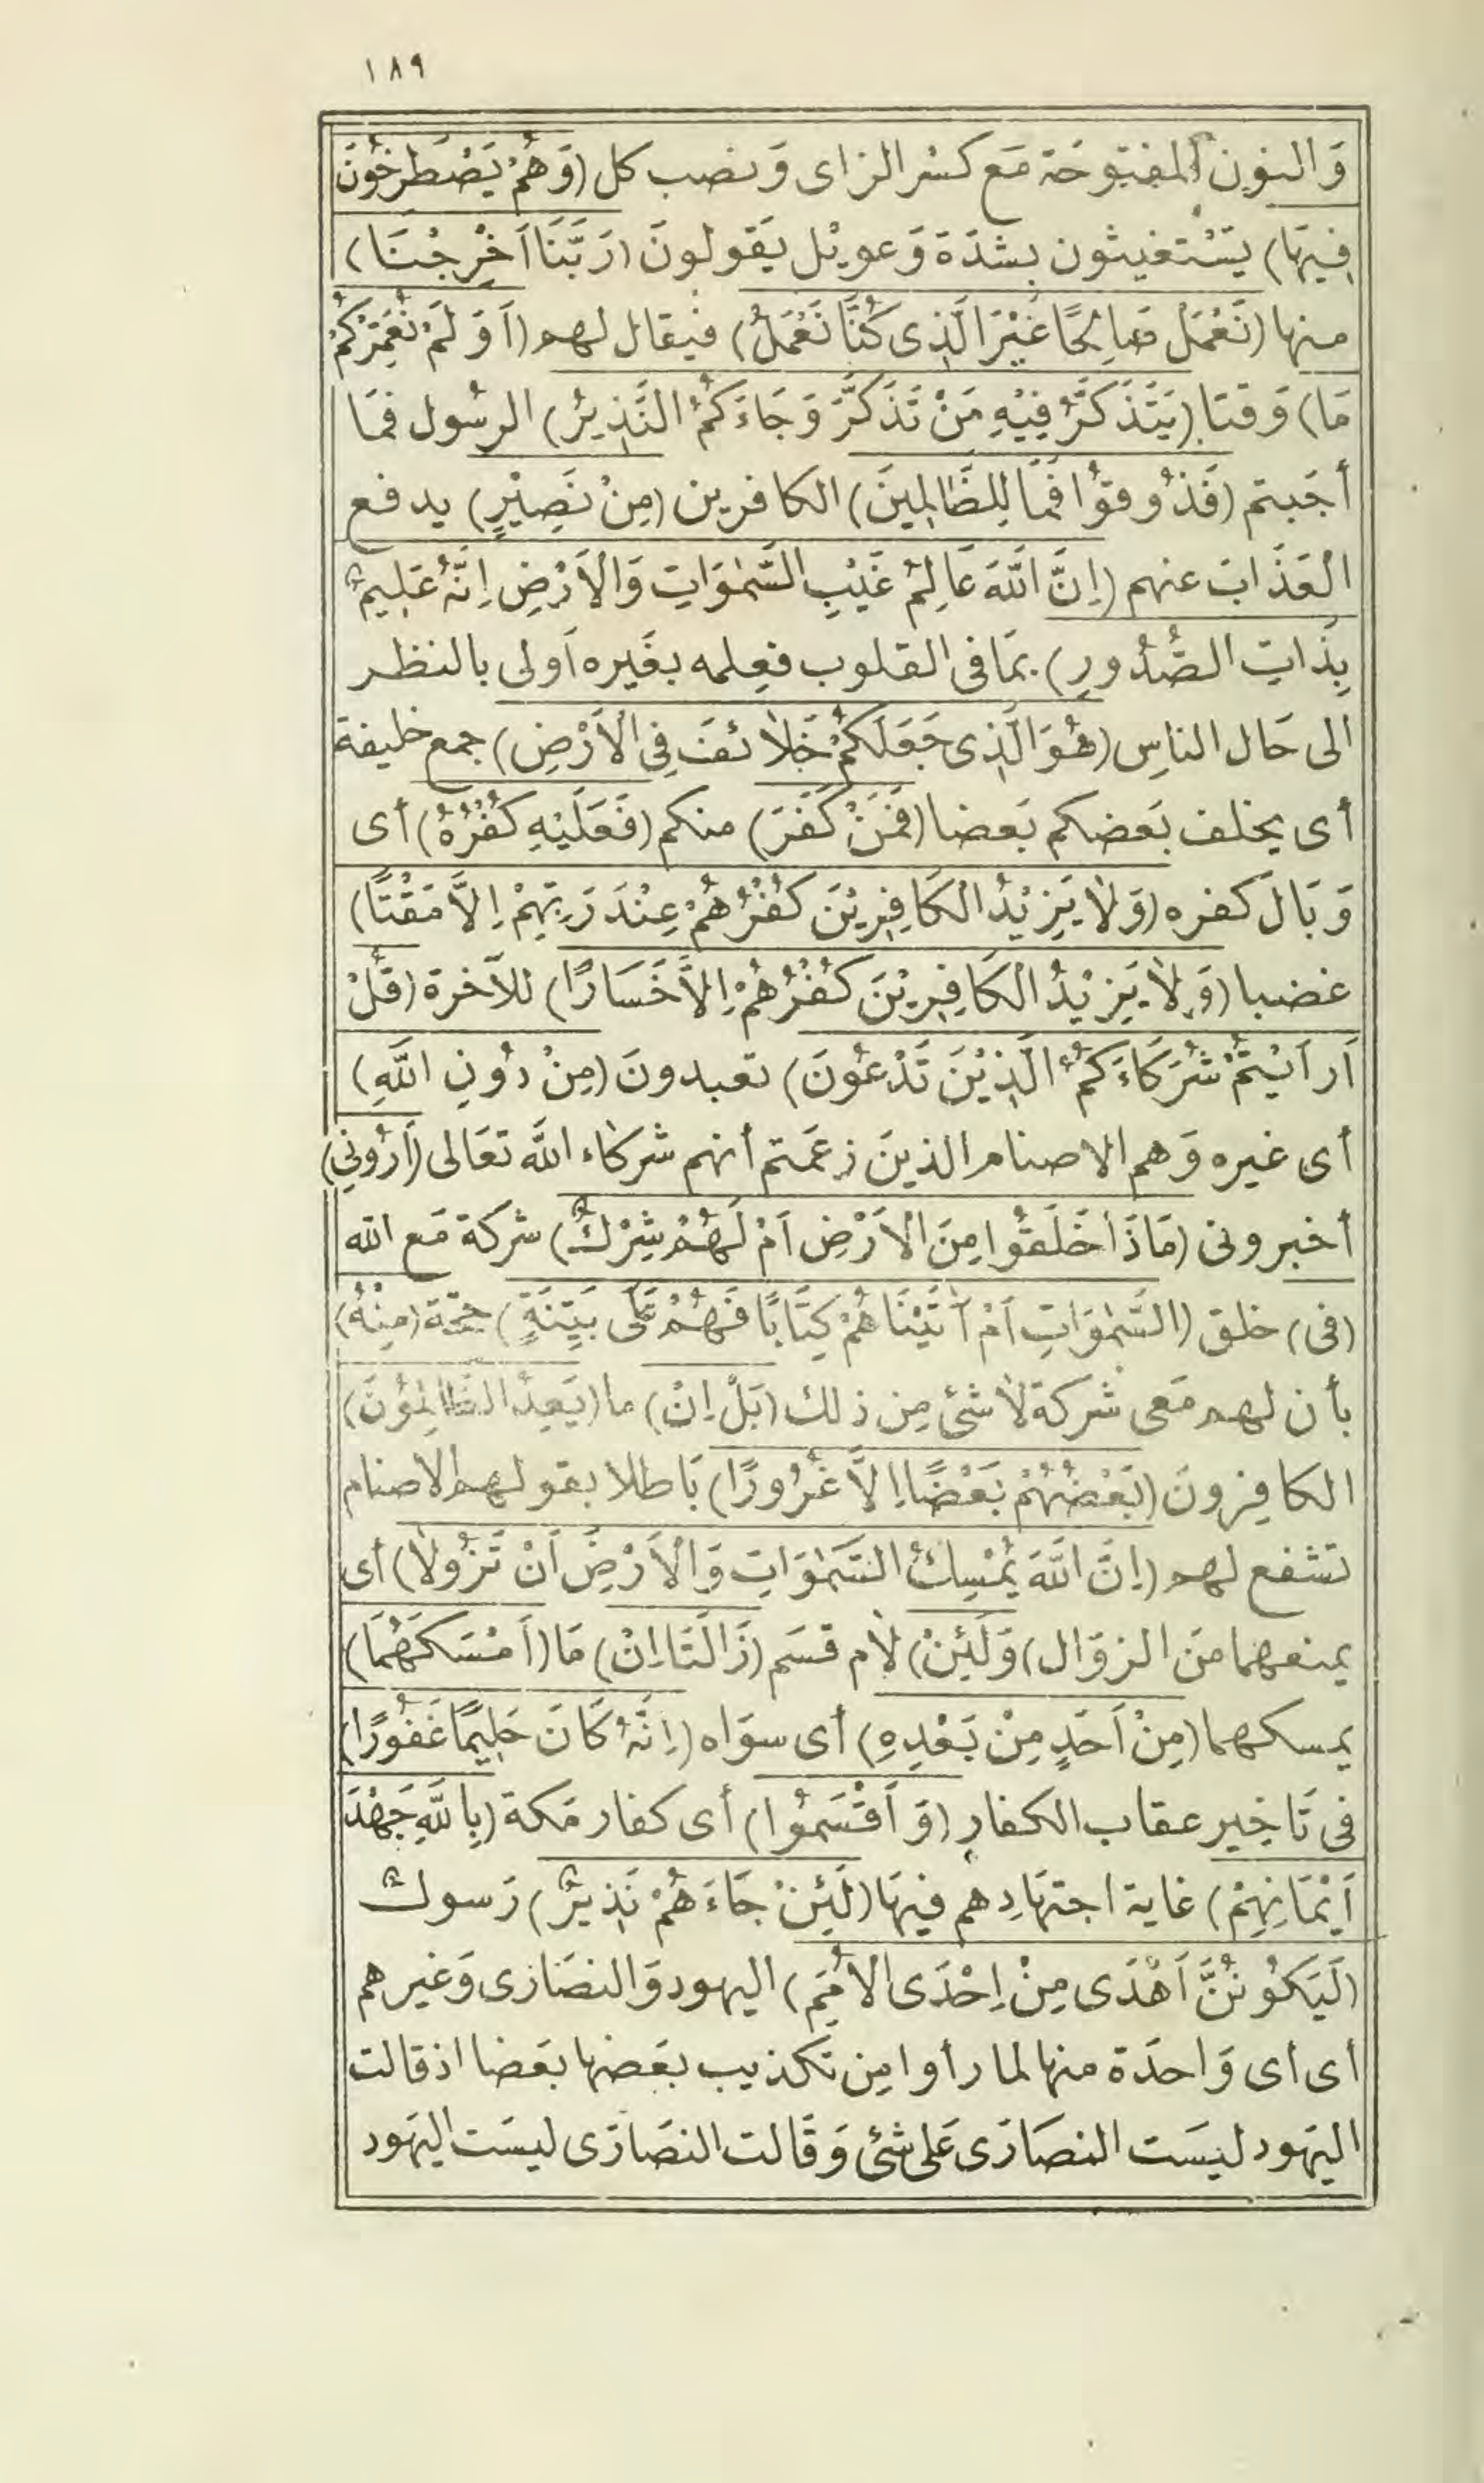 ١٨٩
وَالنون المفتوحَة مَع كسْر الزاى وَنصب كل (وَهُمْ يَصْطَرِخُونَ
فِيهَا) يسْتغيثون بشدَة وَعويْل يَقولونَ (رَبَّنَا اَخْرِجْنَا)
منها (نَعْمَلْ صَالِحًا غَيْرَ الَّذِى كُنَّا نَعْمَلُ) فيقال لهم (اَوَلَمْ نُعَمِّرْكُمْ
مَا) وَقتا (يَتَذَكَّرُ فِيْهِ مَنْ تَذَكَّرَ وَجَاءَكُمُ النَّذِيرُ) الرسُول فمَا
أجَبتم (فَذُوقوُا فَمَا لِلظَّالِمِينَ) الكافرين (مِنْ نَصِيْرٍ) يدفع
العَذَابَ عنهم (اِنَّ اللَّهَ عَالِمُ غَيْبِ السَّمٰوَاتِ وَالْاَرْضِ اِنَّهُ عَلِيمٌ
بِذَاتِ الصُّدُورِ) بمَا فى القلوب فعِلمه بغَيره أَولى بالنظر
الى حَال الناسِ (هُوَ الَّذِى جَعَلَكُمْ خَلاَئفَ فِى الْاَرْضِ) جمع خليفة
أى يخلف بَعضكم بَعضا (فَمَنْ كَفَرَ) منكم (فَعَلَيْهِ كُفْرُهُ) أى
وَبَالَ كفره (وَلاَ يَزِيْدُ الْكَافِرِيْنَ كُفْرُهُمْ عِنْدَ رَبِّهِمْ اِلاَّ مَقْتًا)
غضبا (وَلاَ يَزِيْدُ الْكَافِرِيْنَ كُفْرُهُمْ اِلاَّ خَسَارًا) للآخرة (قُلْ
اَرَاَيْتُمْ شُرَكَاءَكُمُ الَّذِيْنَ تَدْعُونَ) تعبدونَ (مِنْ دُونِ اللَّهِ)
أى غيره وَهم الاصنام الذينَ زعَمتم أنهم شركاء اللَّه تعَالى (اَرُونِى)
أخبرونى (مَاذَا خَلَقُوا مِنَ الْاَرْضِ اَمْ لَهُمْ شِرْكٌ) شركة مَع الله
(فى) خلق (السَّمٰوَاتِ اَمْ آتَيْنَاهُمْ كِتَابًا فَهُمْ عَلَى بَيِّنَةٍ) حجّة (مِنْهُ)
بأن لهم مَعى شركة لاَ شئ مِن ذلك (بَلْ اِنْ) ما (يَعِدُ الظَّالِمُونَ)
الكافِرونَ (بَعْضُهُمْ بَعْضًا اِلاَّ غُرُورًا) بَاطلا بقولهم الاصنام
تشفع لهم (اِنَّ اللَّهَ يُمْسِكُ السَّمٰوَاتِ وَالْاَرْضَ اَنْ تَزُولاَ) أى
يمنعهما منَ الزوَال (وَلَئِنْ) لاَم قسَم (زَالَتَا اِنْ) مَا (اَمْسَكَهُمَا)
يمسكهما (مِنْ اَحَدٍ مِنْ بَعْدِهِ) أى سوَاه (اِنَّهُ كَانَ حَلِيمًا غَفُورًا)
فى تَاخِير عقاب الكفار (وَاَقْسَمُوا) أى كفار مَكة (بِاللَّهِ جَهْدَ
اَيْمَانِهِمْ) غاية اجتهَادِهم فيهَا (لَئِنْ جَاءَهُمْ نَذِيرٌ) رَسولٌ
(لَيَكُونُنَّ اَهْدَى مِنْ اِحْدَى الاُمَمِ) اليهود وَالنصَارَى وَغيرهم
أى أى وَاحدَة منها لما رأوا مِن تكذيب بعَضها بعَضا اذ قالت
اليهَود ليسَت النصَارَى عَلى شئ وَقَالت النصَارَى ليسَت اليهَود